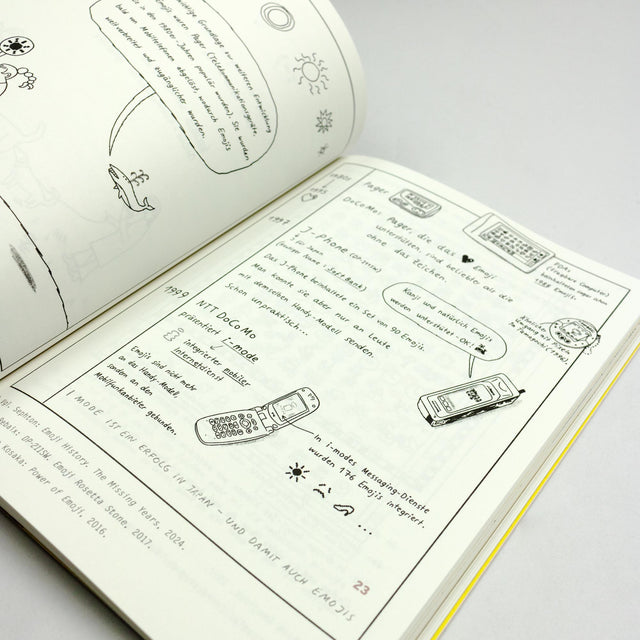 wichtige Grundlage zur weiteren
waren Pager (Telekommunikationsgeräte,
die in den 1980er Jahren genutzt wurden). So wurden
bald von Mobiltelefonen abgelöst, wodurch Emojis
weit verbreitet und zugänglicher wurden.
Pager
DoCoMo: Pager, die das ♥ Emoji
unterstützen, sind beliebter als die
ohne das Zeichen
PDAs
1997
J-Phone (DP-211SW)
für Japan
(heute SoftBank)
Das J-Phone beinhaltete ein Set von 90 Emojis.
Man konnte sie aber nur an Leute
mit demselben Handy-Modell senden.
Schon unpraktisch...
Kanji und natürlich Emojis
werden unterstützt-OK!
1999
NTT DoCoMo
präsentiert i-mode
integrierter mobiler
Internetdienst
Emojis sind nicht mehr
an das Handy-Modell,
sondern an den
Mobilfunkanbieter gebunden.
In i-modes Messaging-Dienste
wurden 176 Emojis integriert.
I MODE IST EIN ERFOLG IN JAPAN - UND DAMIT AUCH EMOJIS
23
Sephton: Emoji History. The Missing Years, 2024.
DP-211SW. Emoji Rosetta Stone, 2017.
Kosaka: Power of Emoji, 2016.